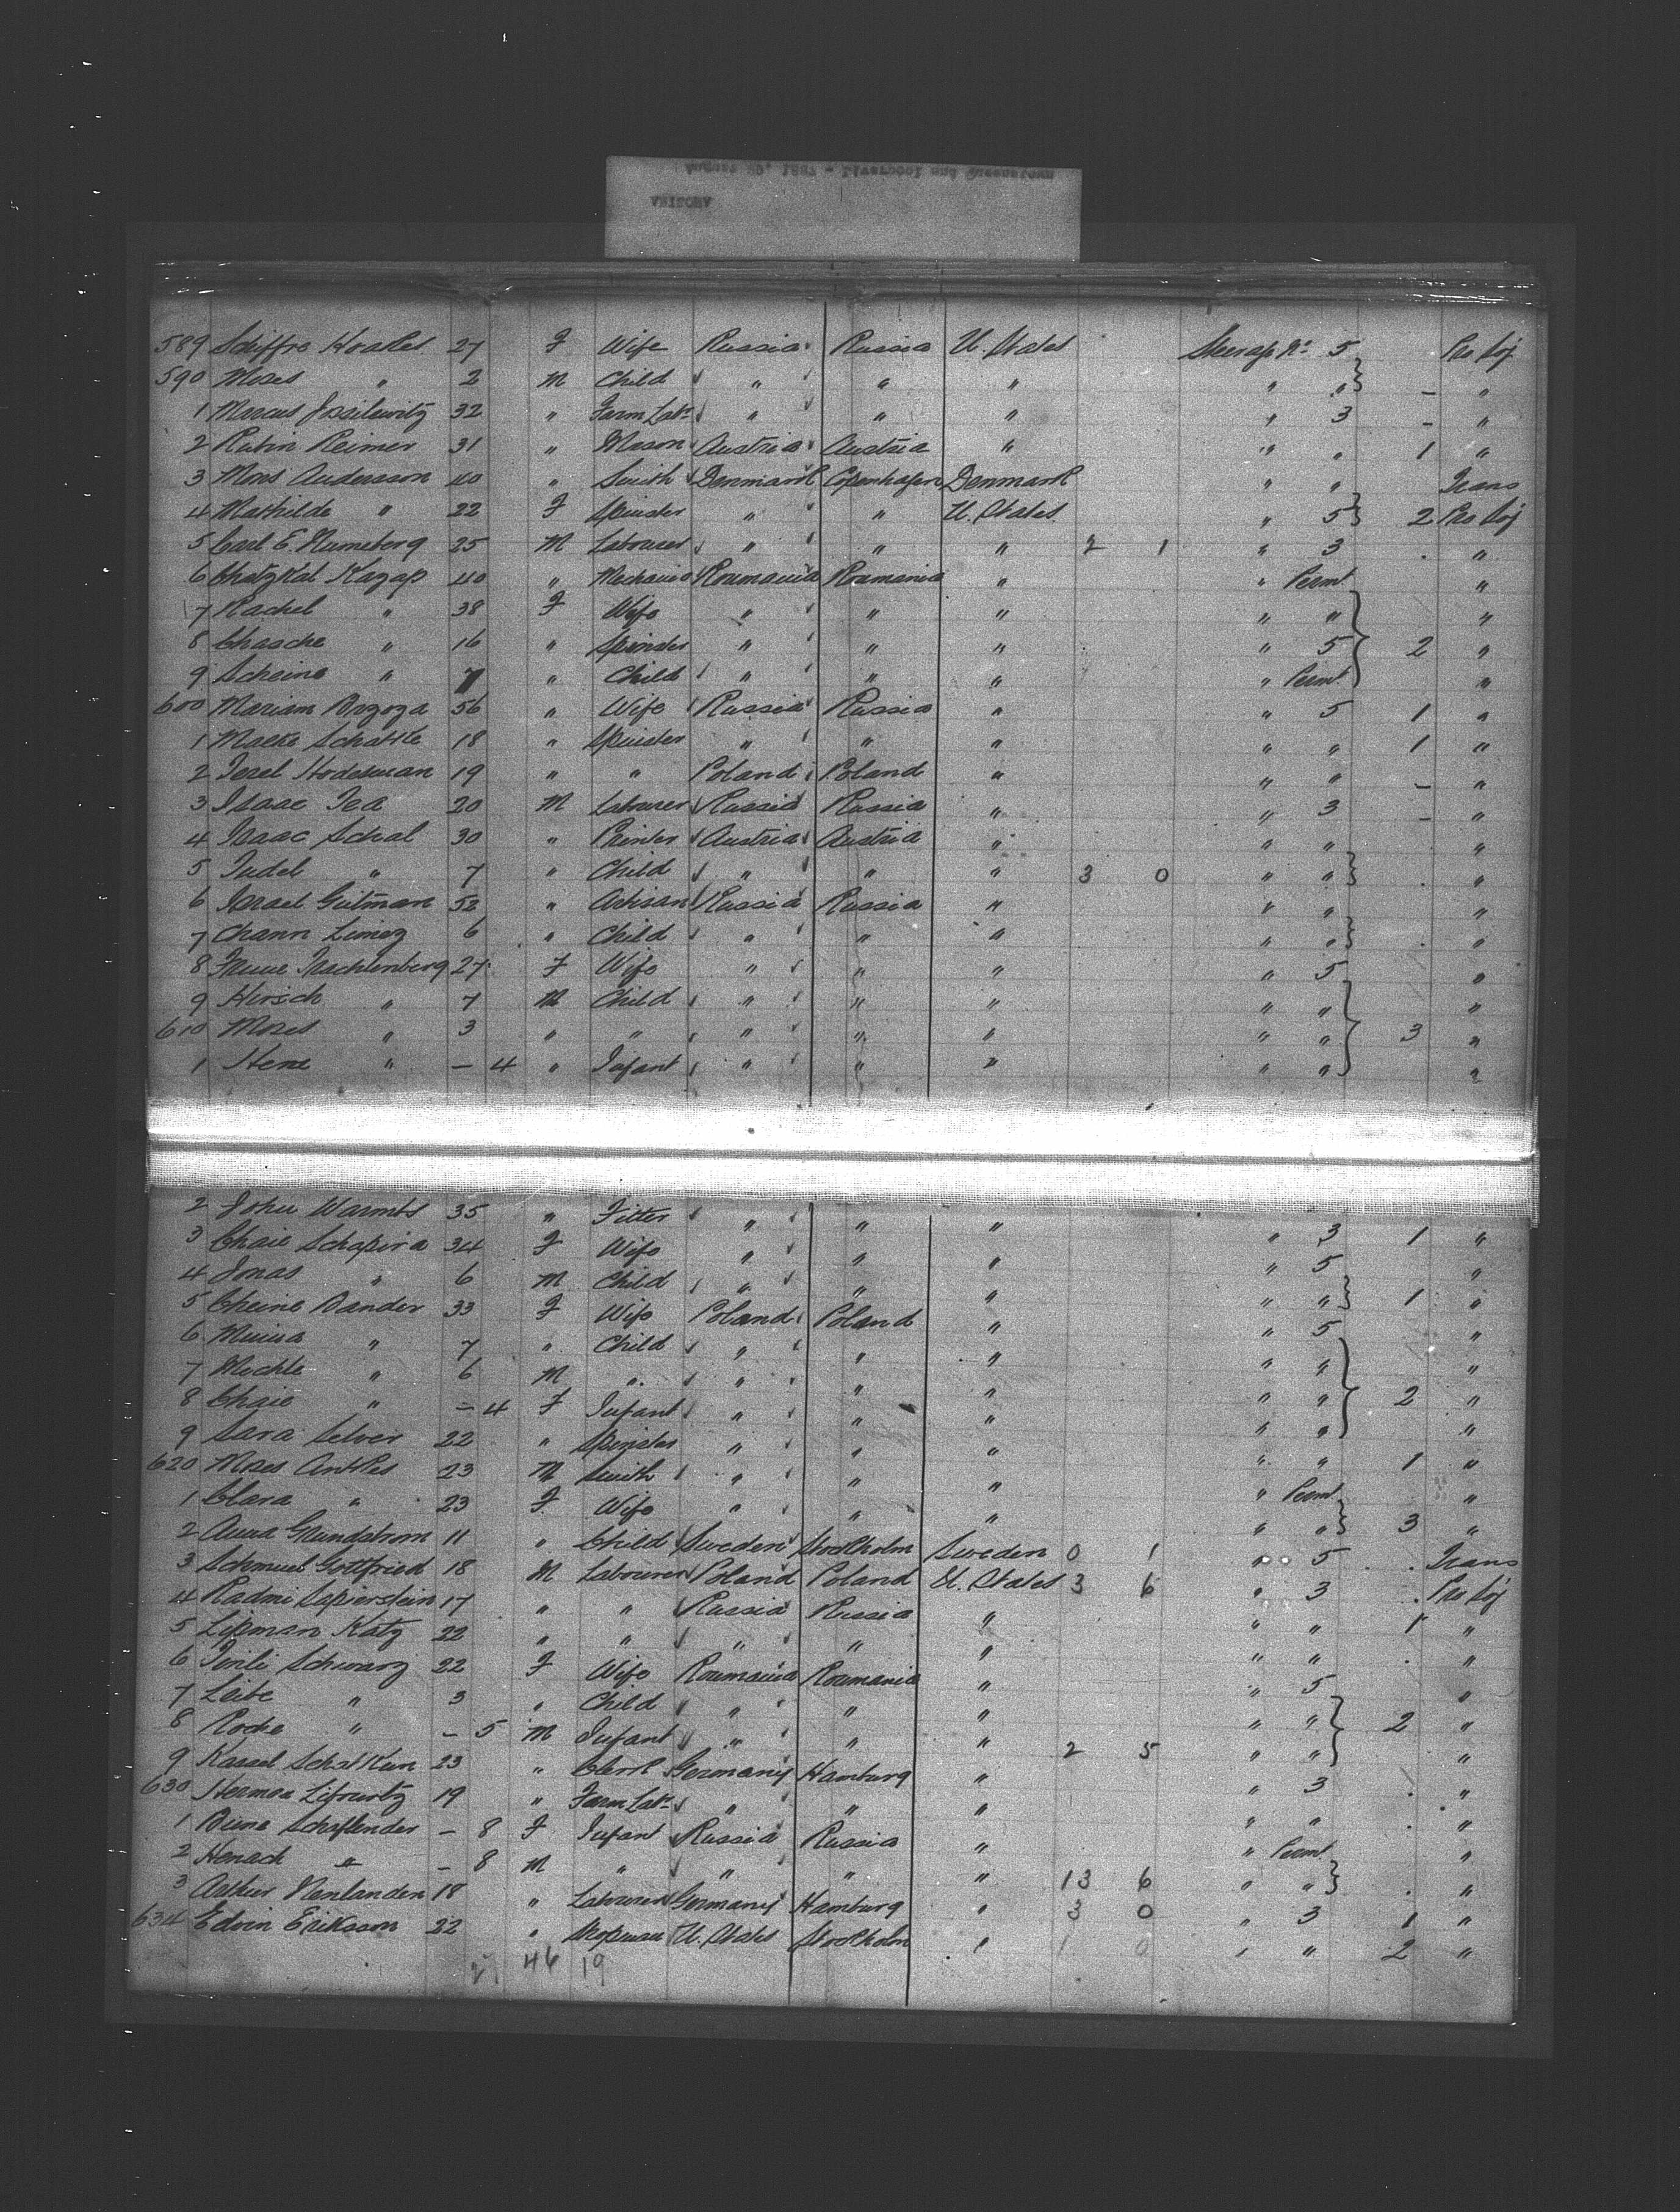 August 29, 1887 - Liverpool and Queenstown
UMBRIA
589 Schiffre Koshes 27 F Wife Russia Russia U. States Steerage No 5 Pro Soj
590 Moses " 2 M Child " " " " " - "
1 Marcus Jossilewitz 32 " Farm Labr " " " " 3 - "
2 Rubin Reimer 31 " Mason Austria Austria " " " 1 "
3 Mons Andersson 40 " Smith Denmark Copenhagen Denmark " " Trans
4 Mathilde " 22 F Spinster " " U. States " 5 2 Pro Soj
5 Carl E. Nurneberg 25 M Labourer " " " 2 1 " 3 . "
6 Chatzkal Kazap 40 " Mechanic Roumania Roumania " " Permt "
7 Rachel " 38 F Wife " " " " " "
8 Chasche " 16 " Spinster " " " " 5 2 "
9 Scheine " 7 " Child " " " " Permt "
600 Mariam 56 " Wife Russia Russia " " 5 1 "
1 Malke 18 " Spinster " " " " " 1 "
2 Hodesman 19 " " Poland Poland " " " - "
3 Isaac 20 M Labourer Russia Russia " " 3 - "
4 Isaac Schal 30 " Printer Austria Austria " " " "
5 Judel " 7 " Child " " " 3 0 " " . "
6 Israel Gutman 52 " Artisan Russia Russia " " " "
7 Chann 6 " Child " " " " " . "
8 Trachtenberg 27 F Wife " " " " 5 "
9 Hirsch " 7 M Child " " " " " "
610 Moses " 3 " " " " " " " 3 "
1 Hene " - 4 " Infant " " " " " "
2 John Warmbs 35 " Fitter " " " " 3 1 "
3 Chaie Schapira 34 F Wife " " " " 5 "
4 Jonas " 6 M Child " " " " " 1 "
5 Cheine Dander 33 F Wife Poland Poland " " 5 "
6 " 7 " Child " " " " " "
7 Mechle " 6 M " " " " " " 2 "
8 Chaie " - 4 F Infant " " " " " "
9 Sara Selver 22 " Spinster " " " " " 1 "
620 Moses 23 M Smith " " " " Permt "
1 Clara " 23 F Wife " " " " " 3 "
2 Anna Grundstrom 11 " Child Sweden Stockholm Sweden 0 1 " 5 . Trans
3 Schmuel Gottfried 18 M Labourer Poland Poland U. States 3 6 " 3 . Pro Soj
4 Radmi Sapierstein 17 " " Russia Russia " " " 1 "
5 Lipman Katz 22 " " " " " " " . "
6 Schwarz 22 F Wife Roumania Roumania " " 5 "
7 Leibe " 3 " Child " " " " " 2 "
8 Roche " - 5 M Infant " " " 2 5 " " "
9 Kassel 23 " Clerk Germany Hamburg " " 3 . "
630 Herman 19 " Farm Labr " " " " " . "
1 - 8 F Infant Russia Russia " " Permt "
2 Henach " - 8 M " " " " 13 6 " " . "
3 Arthur Nenlanden 18 " Labourer Germany Hamburg " 3 0 " 3 1 "
634 Edvin Eriksson 22 " Shopman U. States Stockholm " 1 0 " " 2 "
46 19